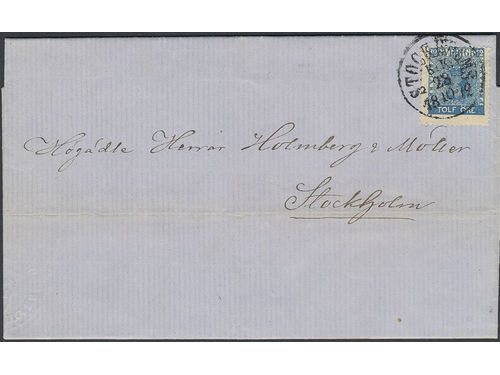 SVERIGE
TOLF ÖRE
Högädle Herrar Holmberg & Möller
Stockholm